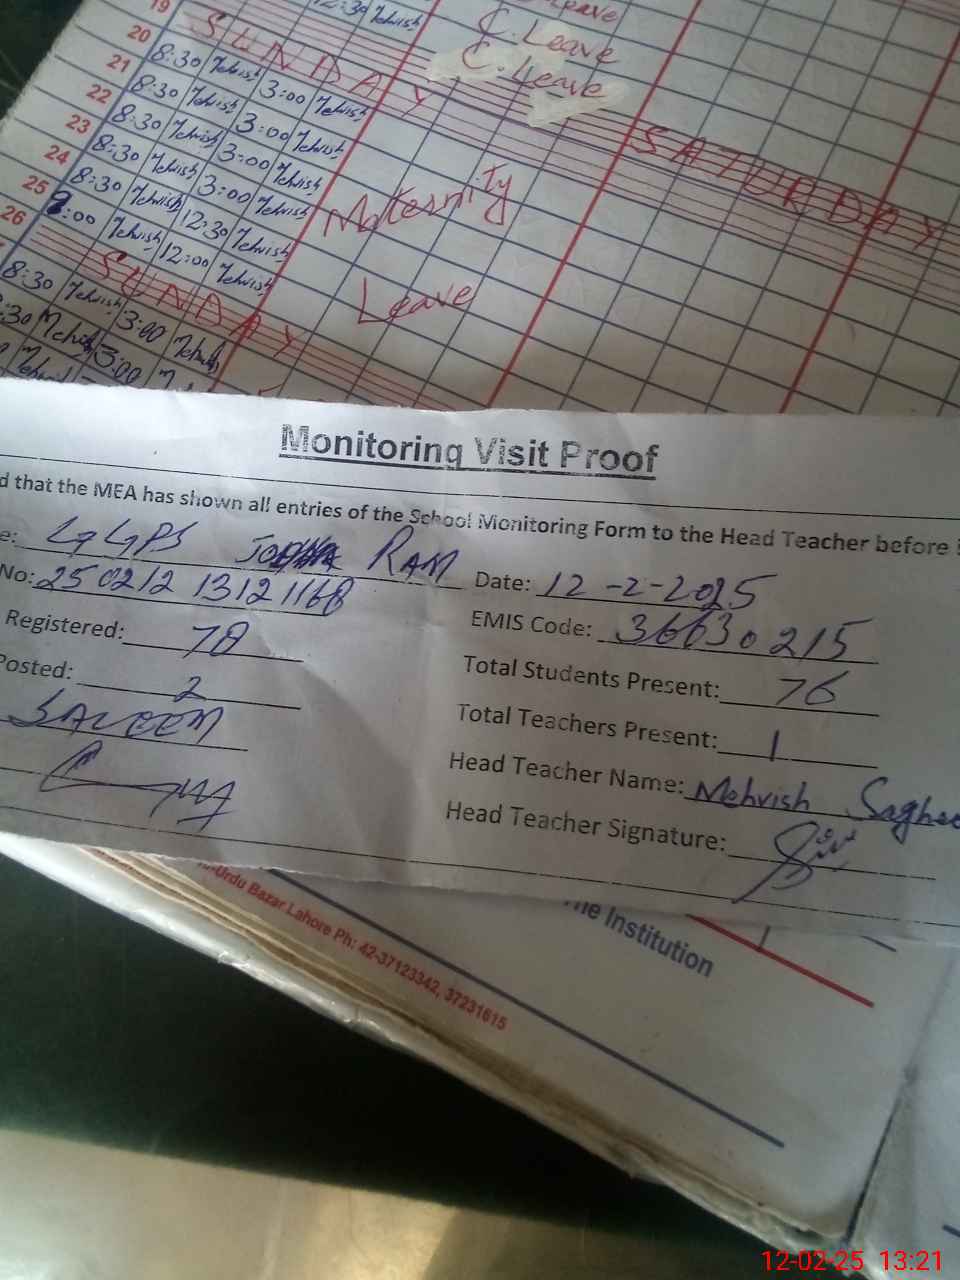 19 12:30 Mehvish Leave
20 SUNDAY C.Leave
21 8:30 Mehvish 3:00 Mehvish C.Leave
22 8:30 Mehvish 3:00 Mehvish SATURDAY
23 8:30 Mehvish 3:00 Mehvish
24 8:30 Mehvish 3:00 Mehvish Maternity
25 8:30 Mehvish 12:30 Mehvish
26 9:00 Mehvish 12:00 Mehvish Leave
SUNDAY
8:30 Mehvish 3:00 Mehvish
:30 Mehvish 3:00
Mehvish
Monitoring Visit Proof
d that the MEA has shown all entries of the School Monitoring Form to the Head Teacher before
e: GGPS RAM
No: 250212 13121168 Date: 12-2-2025
Registered: 78 EMIS Code: 36630215
Posted: 2 Total Students Present: 76
SALEEM Total Teachers Present: 1
Head Teacher Name: Mehvish Saghee
Head Teacher Signature:
-Urdu Bazar Lahore Ph: 42-37123342, 37231615
The Institution
12-02-25 13:21